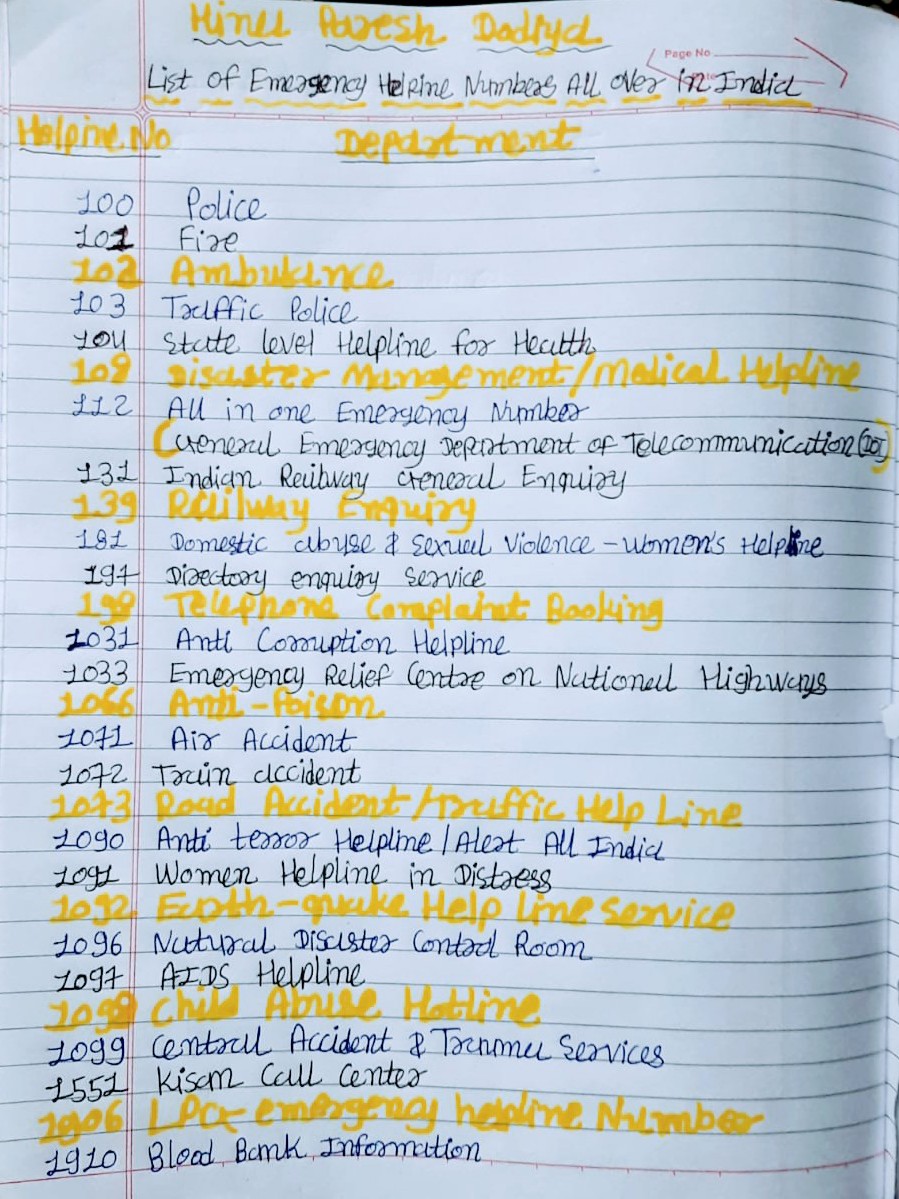 Hinu Paresh Dodiya
Page No
Date
List of Emergency Helpine Numbers All over in India
Helpine.No Department
100 Police
101 Fire
102 Ambulance
103 Traffic Police
104 State level Helpline for Health
108 Disaster Management/Medical Helpline
112 All in one Emergency Number
(General Emergency Department of Telecommunication
131 Indian Railway General Enquiry
139 Railway Enquiry
181 Domestic abuse & Sexual Violence - Women's Helpline
197 Directory enquiry service
198 Telephone Complaint Booking
1031 Anti Corruption Helpline
1033 Emergency Relief Centre on National Highways
1066 Anti-Poison
1071 Air Accident
1072 Train accident
1073 Road Accident/Traffic Help Line
1090 Anti terror Helpline / Alert All India
1091 Women Helpline in Distress
1092 Earth-quake Help line service
1096 Natural Disaster Control Room
1097 AIDS Helpline
1098 Child Abuse Hotline
1099 Central Accident & Tranma Services
1551 Kisan Call Center
1906 LPG emergency helpline Number
1910 Blood Bank Information